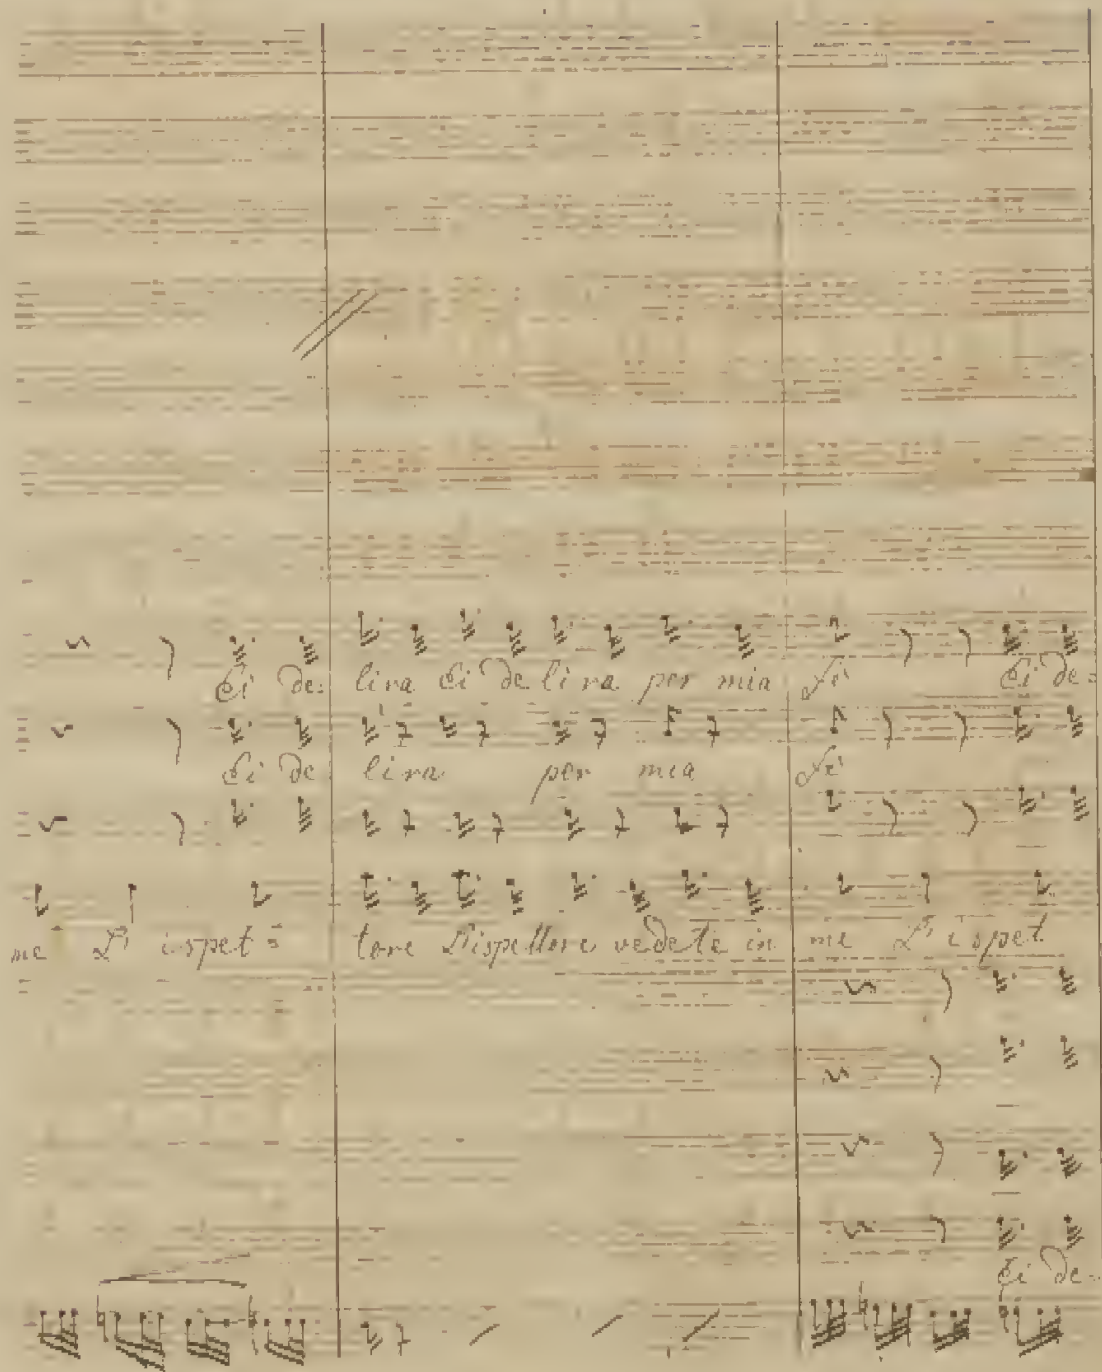 Ei de= lira Ei de lira per mia fè Ei de=
Ei de lira per mia fè
me L' ispet= tore L'ispettore vedete in me L' ispet
Ei de=